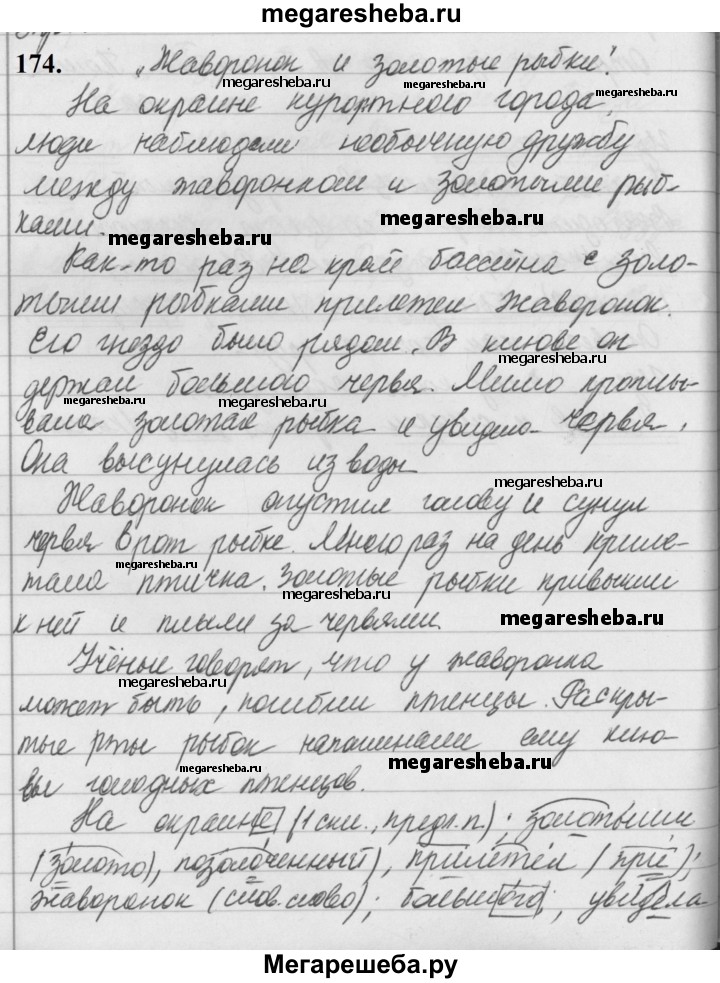 megaresheba.ru
174.
„Жаворонок и золотые рыбки".
megaresheba.ru
megaresheba.ru
На окраине курортного города,
люди наблюдали необычную дружбу
между жаворонком и золотыми рыб-
ками.
megaresheba.ru
megaresheba.ru
Как-то раз на край бассейна с золо-
тыми рыбками прилетел жаворонок.
Его гнездо было рядом. В клюве он
megaresheba.ru
держал большого червя. Мимо проплы-
megaresheba.ru
вала золотая рыбка и увидела червя.
Она высунулась из воды
megaresheba.ru
Жаворонок опустил голову и сунул
червя в рот рыбке. Много раз на день приле-
megaresheba.ru
тала птичка. Золотые рыбки привыкли
megaresheba.ru
к ней и плыли за червями.
megaresheba.ru
Учёные говорят, что у жаворонка
megaresheba.ru
может быть, погибли птенцы. Раскры-
тые рты рыбок напоминали ему клю-
megaresheba.ru
megaresheba.ru
вы голодных птенцов.
На окраине (1 скл., предл.п.); золотыми
(золото), позолоченный), прилетел (при);
жаворонок (слов.слово); большого; увидела-
Мегарешеба.ру